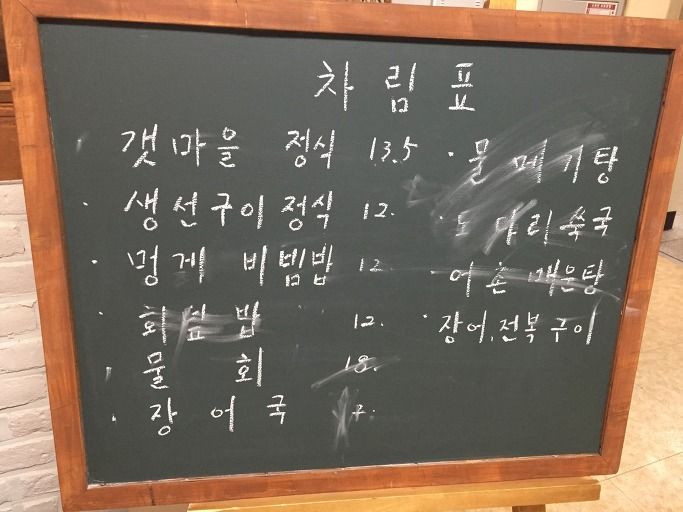 차림표
갯마을 정식 13.5
· 생선구이 정식 12.
· 멍게 비빔밥 12
· 회덮밥 12.
· 물 회 18.
· 장어국
· 물메기탕
· 도다리쑥국
· 어촌 매운탕
· 장어, 전복구이